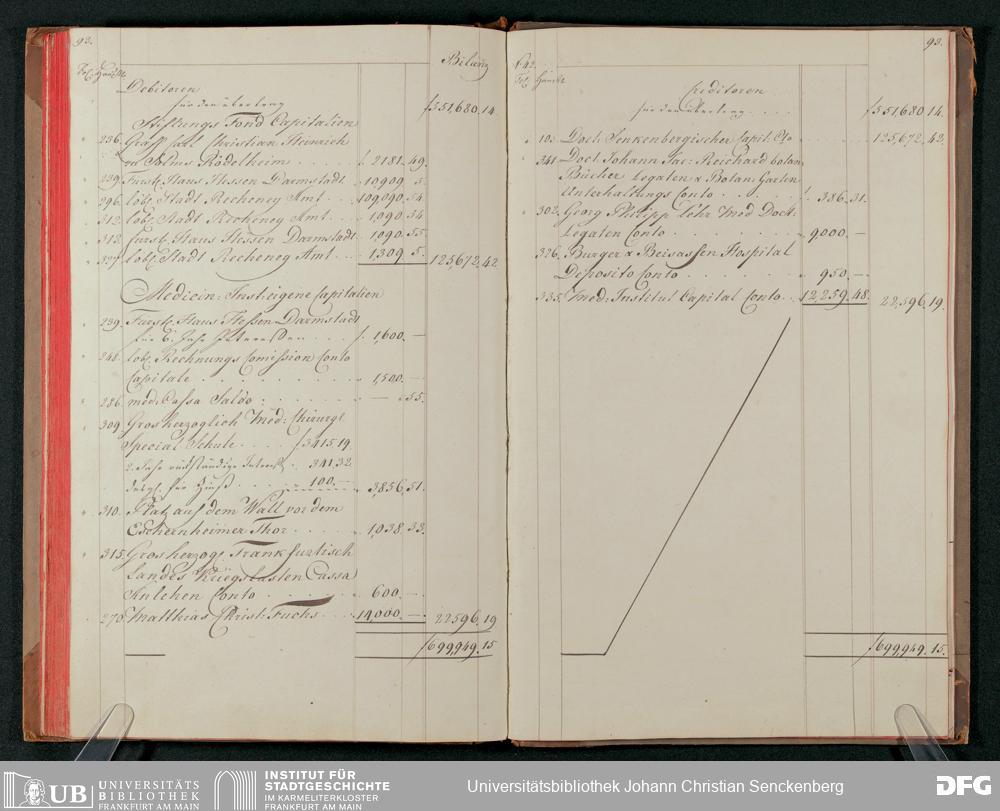 93.
Bilanz
Debitoren
für den übertrag f 551,680.14.
Stiftungs Fond Capitalien
236. Graff Carl Christian Heinrich
zu Solms Rödelheim f. 2181.49.
239. Furstl. Haus Hessen Darmstadt 10,909.5.
296. lobl. Stadt Recheney Amt 109,090.54.
312. lobl. Stadt Recheney Amt 1,090.54
313. furstl. Haus Hessen Darmstadt 1,090.55.
327. lobl. Stadt Recheney Amt 1,309.5. 125,672.42
Medicin: Inst: eigene Capitalien
239. Furstl. Haus Hessen Darmstadt
für 6. Jahr Interessen f. 1,600.—
248. lobl. Rechnungs Comission Conto
Capitale 1,500.—
286. med: Cassa Saldo — .55.
309. Grosherzoglich Med: Chirurg:
Special Schule f 3415.19.
2. Jahr rückständige Interesse 341.32.
desgl. für Hauß 100.— 3,856.51.
310. Platz auf dem Wall vor dem
Eschernheimer Thor 1,038.33.
315. Grosherzogl. Frankfurtisch
Landes Kriegslasten Cassa
Anlehen Conto 600.—
270. Matthias Christ: Fuchs 14,000.— 22596.19
f 699,949.15.
93.
Creditoren
für den übertrag f 551,680.14.
10. Doct. Senkenbergischer Capit. Cto 125,672.42.
341. Doct. Johann Jac: Reichard botan:
Bücher Legaten & Botan: Garten
Unterhaltungs Conto f. 386.31.
302. Georg Philipp Lehr Med Doct:
Legaten Conto 9,000.—
326. Burger & Beisassen Hospital
Deposito Conto 950.—
335. Med: Institut Capital Conto 12,259.48. 22,596.19.
f 699,949.15.
UB UNIVERSITÄTS
BIBLIOTHEK
FRANKFURT AM MAIN
INSTITUT FÜR
STADTGESCHICHTE
IM KARMELITERKLOSTER
FRANKFURT AM MAIN
Universitätsbibliothek Johann Christian Senckenberg
DFG